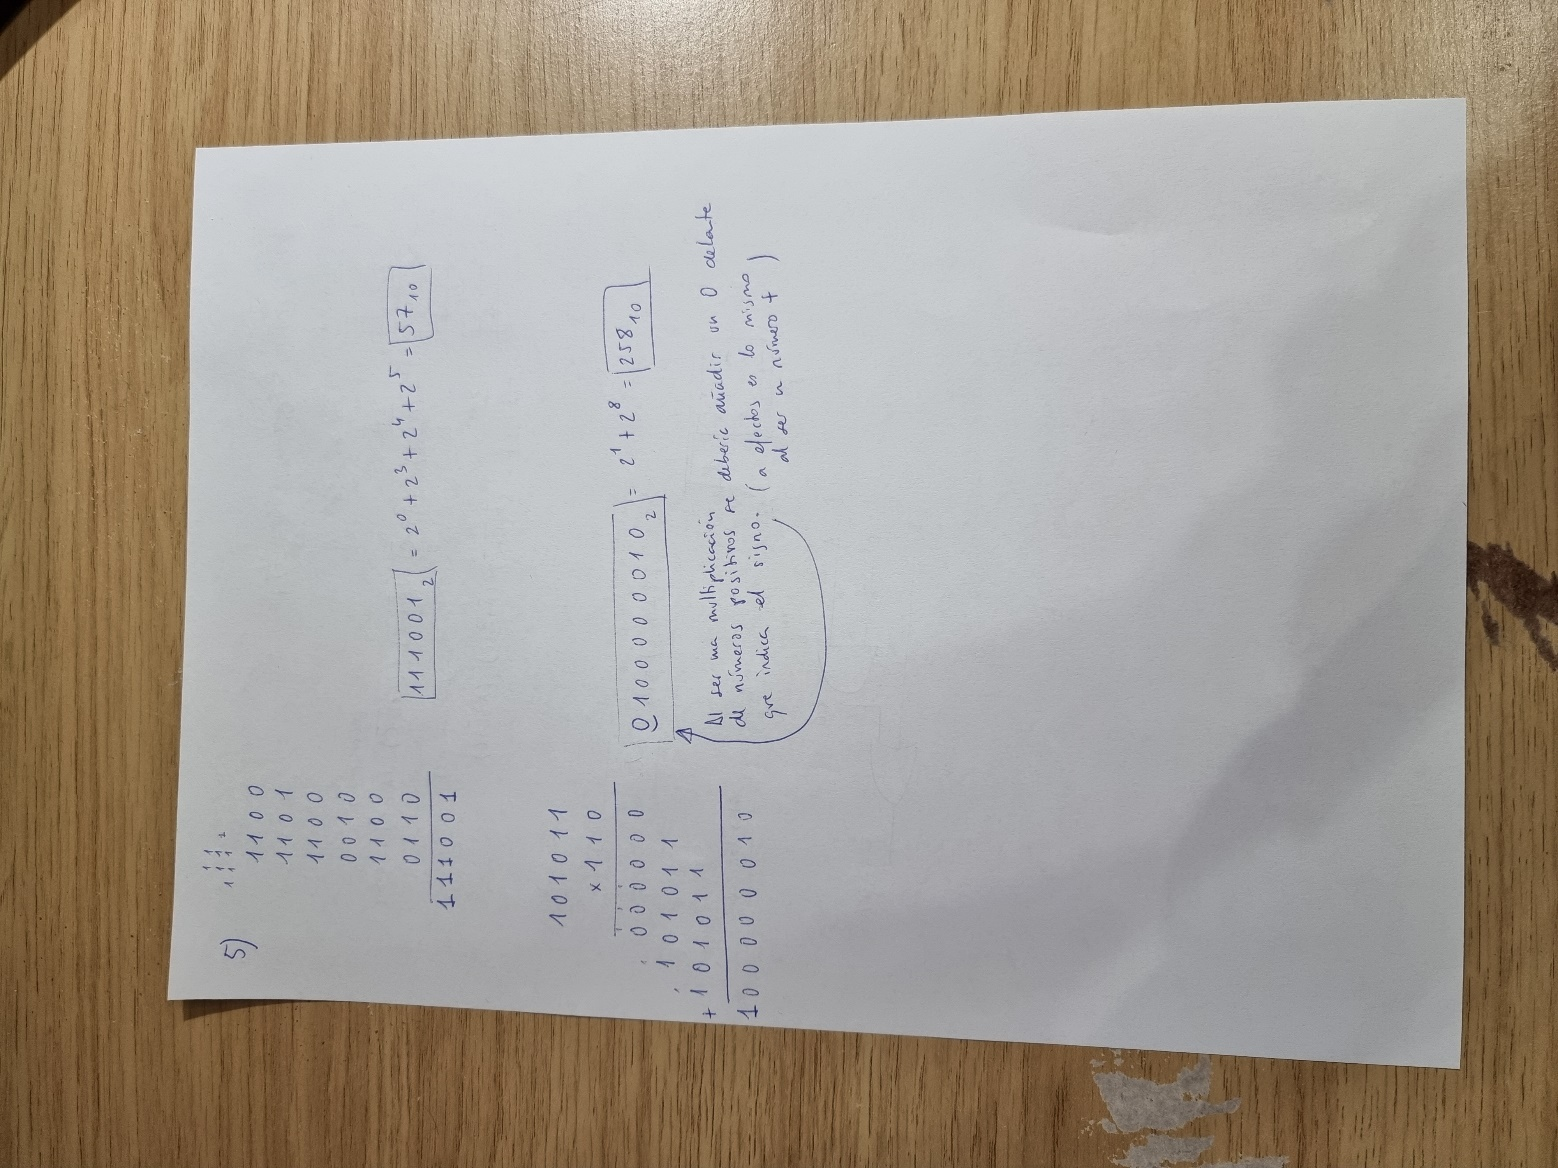 5)
1 1 0 0
1 1 0 1
1 1 0 0
0 0 1 0
1 1 0 0
0 1 1 0
1 1 1 0 0 1
111001₂ = 2⁰ + 2³ + 2⁴ + 2⁵ = 57₁₀
1 0 1 0 1 1
x 1 1 0
0 0 0 0 0 0
1 0 1 0 1 1
+ 1 0 1 0 1 1
1 0 0 0 0 0 0 1 0
0 1 0 0 0 0 0 0 1 0₂ = 2¹ + 2⁸ = 258₁₀
Al ser una multiplicación
de números positivos se debería añadir un 0 delante
que indica el signo. (a efectos es lo mismo
al ser un número +)